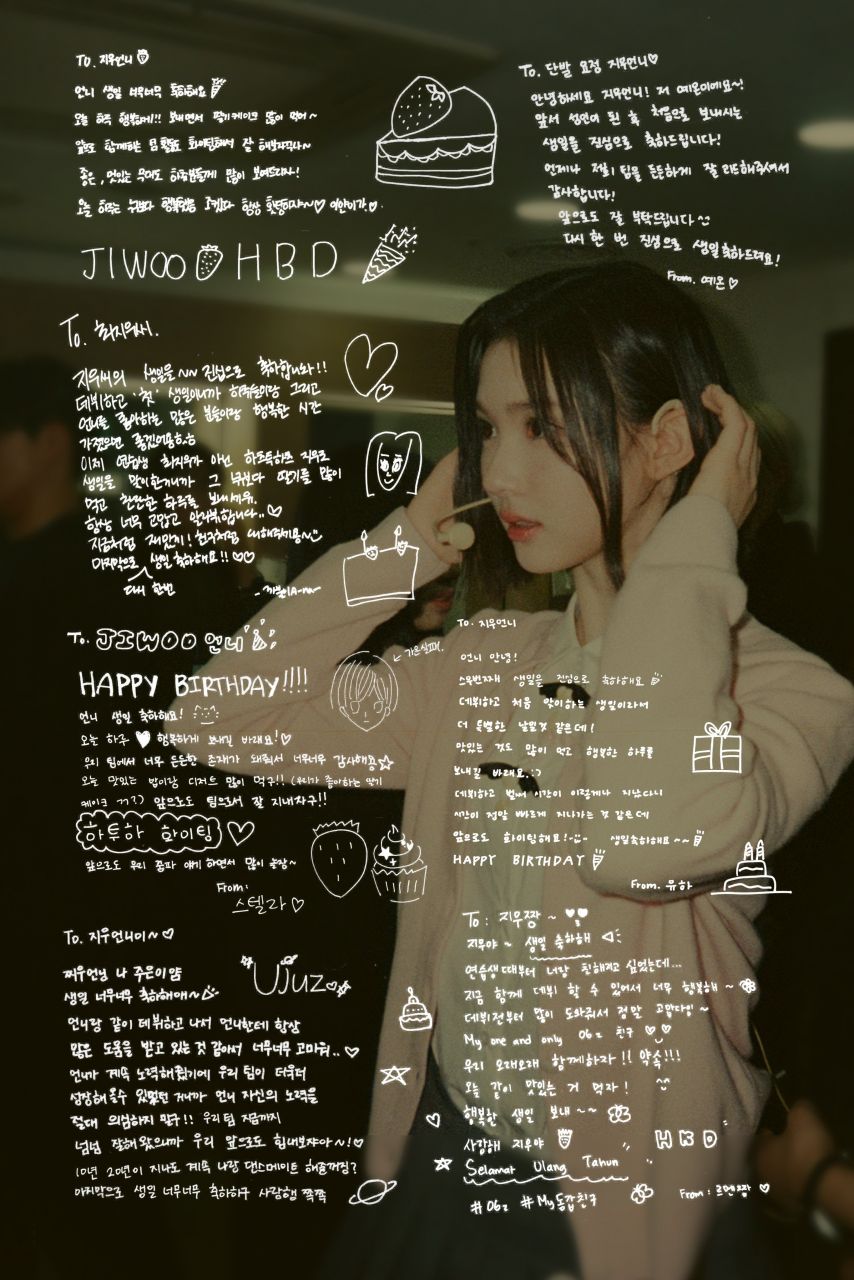 To. 지우언니
언니 생일 너무너무 축하해요
오늘 하루 행복하게!! 보내면서 딸기케이크 많이 먹어~
앞으로 함께하는 활동도 화이팅해서 잘 해보자구나~
좋은, 멋있는 무대도 하루들에게 많이 보여드리자!
오늘 하루는 누구보다 행복했음 좋겠다 항상 화이팅이야~♡ 이안이가♡.
JIWOO HBD
To. 단발 요정 지우언니♡
안녕하세요 지우언니! 저 예온이에요~!
앞서 성인이 된 후 처음으로 보내시는
생일을 진심으로 축하드립니다!
언제나 저희 팀을 든든하게 잘 리드해주셔서
감사합니다!
앞으로도 잘 부탁드립니다^^
다시 한 번 진심으로 생일축하드려요!
From. 예온♡
To. 최지우씨.
지우씨의 생일을~~ 진심으로 축하합니다!!
데뷔하고 '첫' 생일이니까 하루들이랑 그리고
언니를 좋아하는 많은 분들이랑 행복한 시간
가졌으면 좋겠어용ㅎㅎ
이제 연습생 최지우가 아닌 하츠투하츠 지우로
생일을 맞이한거니까 그 누구보다 딸기를 많이
먹고 찬란한 하루를 보내세요.
항상 너무 고맙고 알라뷰합니다..♡
지금처럼 재밌게! 친구처럼 대해주세용~
마지막으로 다시 한번 생일축하해요!!♡♡
To. JIWOO 언니
HAPPY BIRTHDAY!!!!
언니 생일 축하해요!
오늘 하루 ♥ 행복하게 보내길 바래요!♡
우리 팀에서 너무 든든한 존재가 돼줘서 너무너무 감사해용☆
오늘 맛있는 밥이랑 디저트 많이 먹구!! (우리가 좋아하는 딸기
케이크 ㄲㄲ?) 앞으로도 팀으로서 잘 지내자구!!
하투하 화이팅 ♡
앞으로도 우리 종파 얘기 하면서 많이 놀장~
From:
스텔라♡
가운실패.
To. 지우언니
언니 안녕!
스무번째 생일을 진심으로 축하해요
데뷔하고 처음 맞이하는 생일이라서
더 특별한 날일것 같은데!
맛있는 것도 많이 먹고 행복한 하루를
보내길 바래요.:)
데뷔하고 벌써 시간이 이렇게나 지났다니
시간이 정말 빠르게 지나가는 것 같은데
앞으로도 화이팅해요! 생일축하해요~~
HAPPY BIRTHDAY
From. 유하
To. 지우언니이~♡
찌우언닝 나 주은이얌
생일 너무너무 축하해애~
언니랑 같이 데뷔하고 나서 언니한테 항상
많은 도움을 받고 있는 것 같아서 너무너무 고마워..♡
언니가 계속 노력해줬기에 우리 팀이 더욱더
성장해올수 있었던 거니까 언니 자신의 노력을
절대 의심하지 말구!! 우리팀 지금까지
넘넘 잘해왔으니까 우리 앞으로도 힘내보쟈아~!♡
10년 20년이 지나도 계속 나랑 댄스메이트 해줄꺼징?
마지막으로 생일 너무너무 축하하구 사랑행 쪽쪽
UJUZ
To: 지우짱~
지우야~ 생일 축하해
연습생때부터 너랑 친해지고 싶었는데...
지금 함께 데뷔 할 수 있어서 너무 행복해~
데뷔전부터 많이 도와줘서 정말 고맙다잉~
My one and only 06z 친구 ♡♡
우리 오래오래 함께하자!! 약속!!!
오늘 같이 맛있는 거 먹자!
행복한 생일 보내~~
사랑해 지우야 HKD
Selamat Ulang Tahun
#06z #My동갑친구
From: 르멘짱 ♡